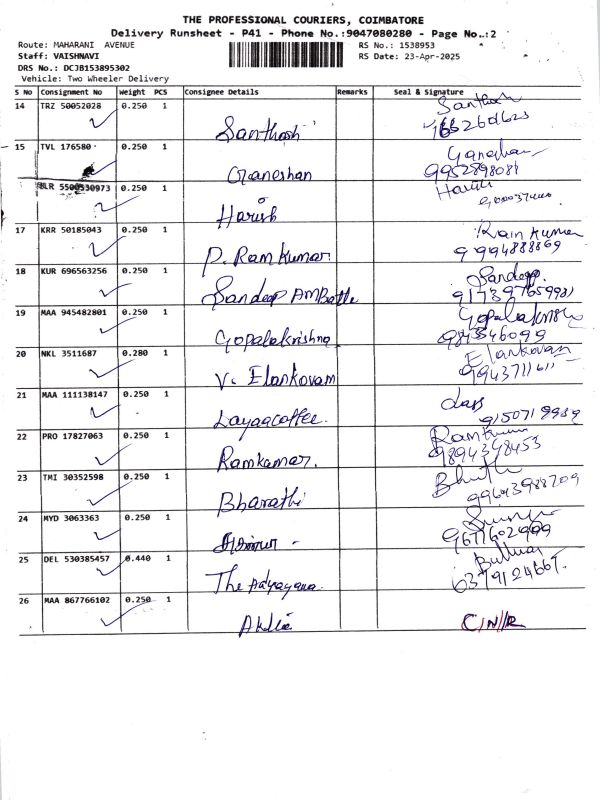 THE PROFESSIONAL COURIERS, COIMBATORE
Delivery Runsheet - P41 - Phone No.:9047080280 - Page No.:2
Route: MAHARANI AVENUE RS No.: 1538953
Staff: VAISHNAVI RS Date: 23-Apr-2025
DRS No.: DCJB153895302
Vehicle: Two Wheeler Delivery
S No Consignment No Weight PCS Consignee Details Remarks Seal & Signature
14 TRZ 50052028 0.250 1 Santhosh Santhosh
15 TVL 176580 0.250 1 Ganeshan Ganeshan
9952898081
BLR 5500530973 0.250 1 Harish Harish
17 KRR 50185043 0.250 1 P. Ram Kumar. Ram Kumar
9994888869
18 KUR 696563256 0.250 1 Sandeep Sandeep
917397659981
19 MAA 945482801 0.250 1 Gopalakrishna Gopalakrishna
9843546099
20 NKL 3511687 0.280 1 V. Elankovam Elankovan
9943711611
21 MAA 111138147 0.250 1 Layaacoffee. dass
9150719989
22 PRO 17827063 0.250 1 Ramkumar. Ramkumar
9894348453
23 TMI 30352598 0.250 1 Bharathi
99643988709
24 MYD 3063363 0.250 1
9677602999
25 DEL 530385457 0.440 1 The Adyayana
6379124667.
26 MAA 867766102 0.250 1 C/N/R